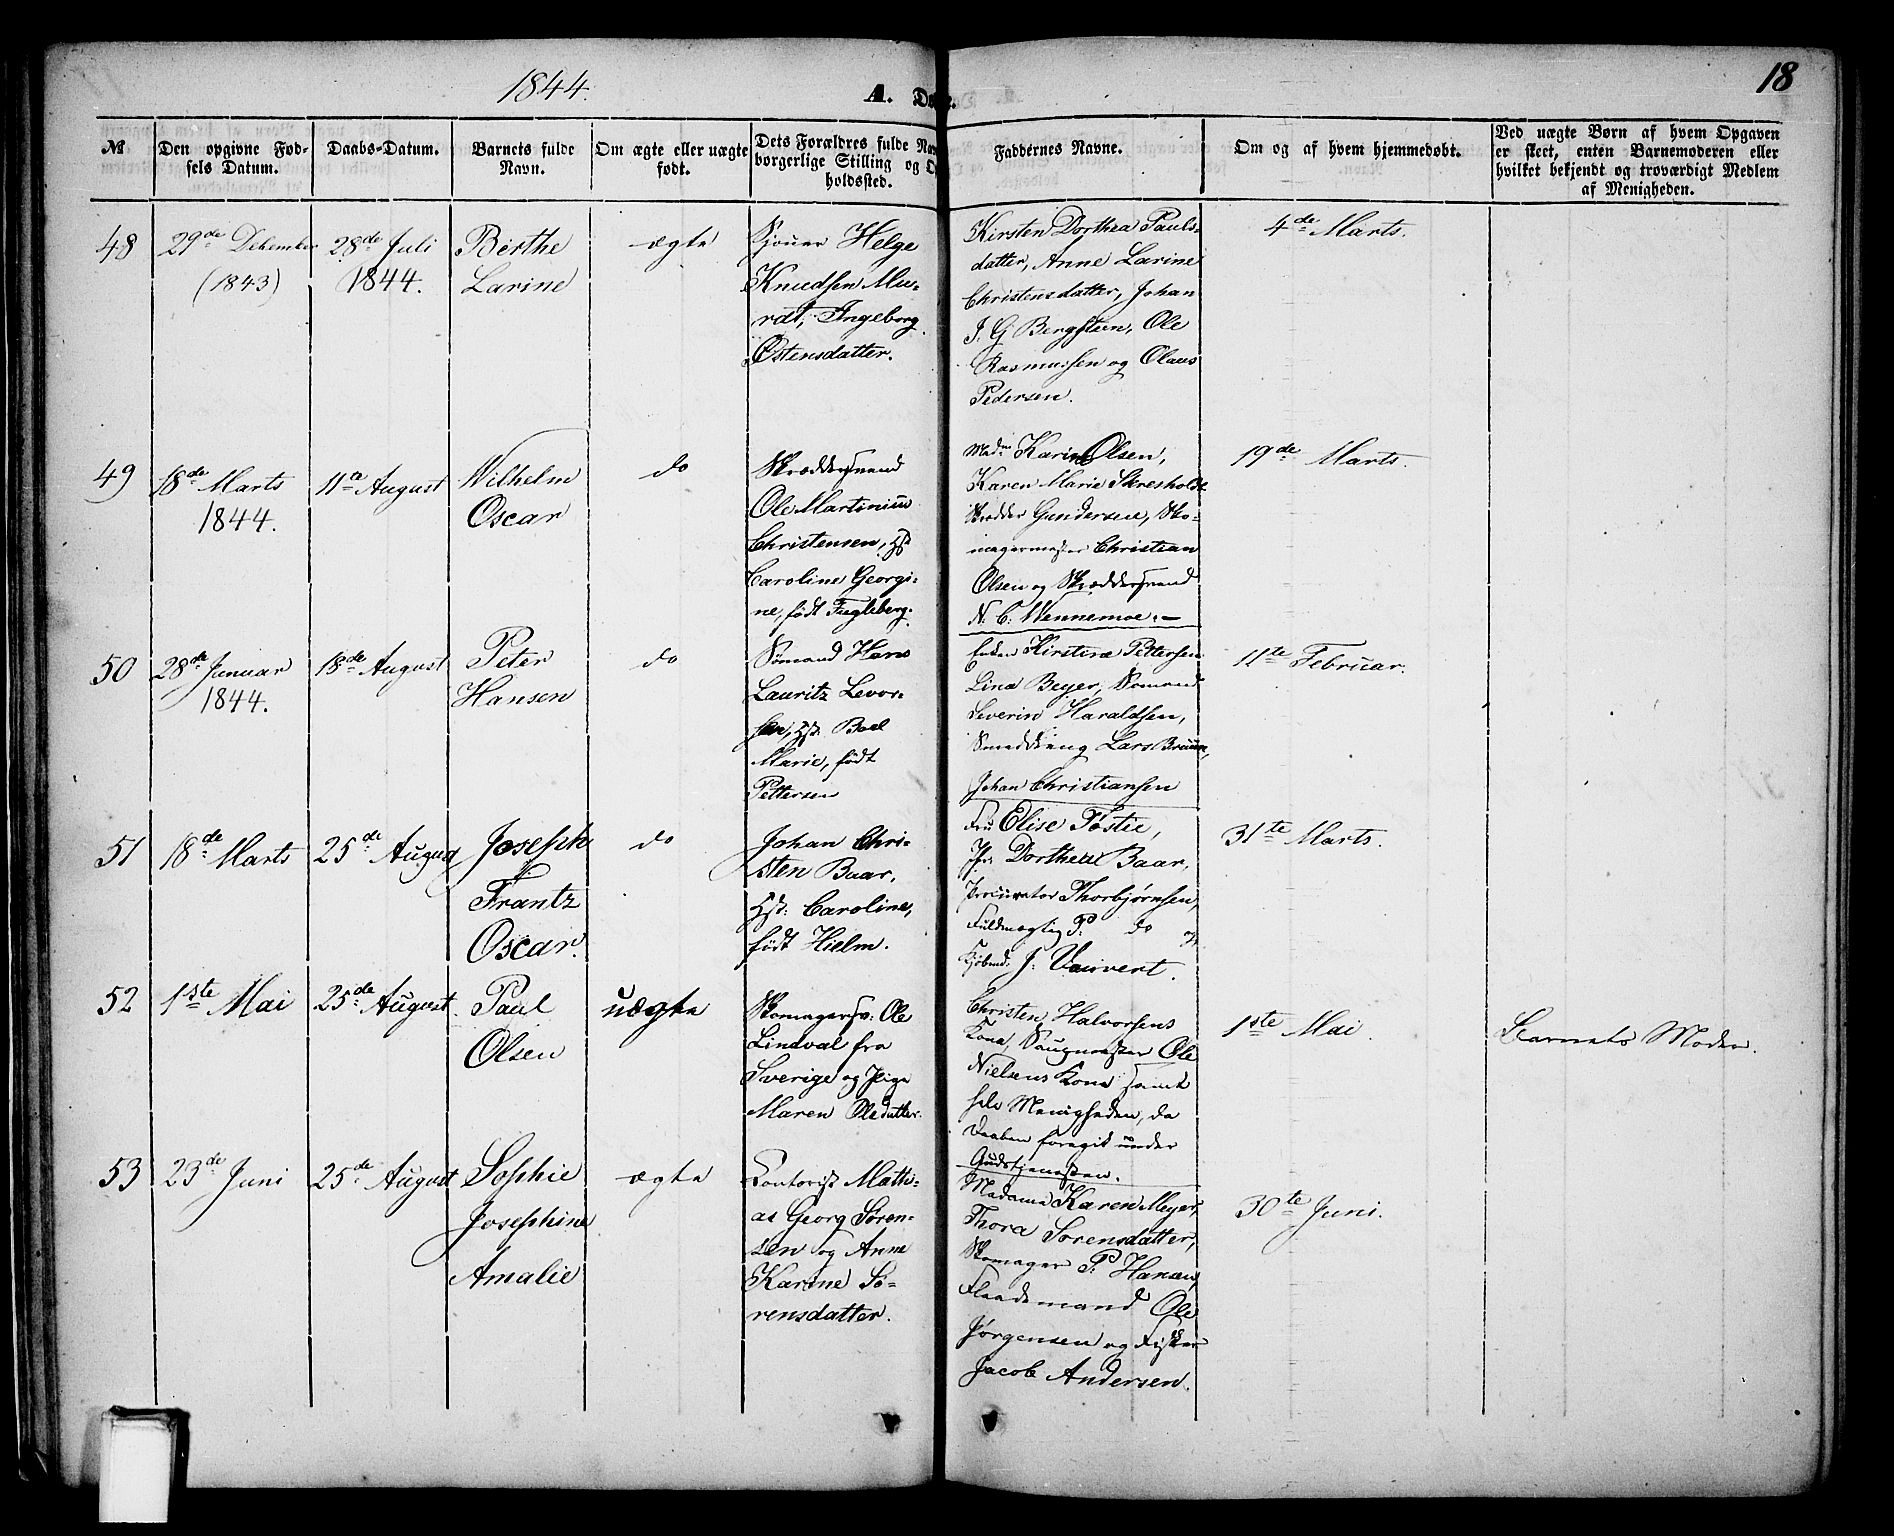 1844.
A. Døbte.
18
№
Den opgivne Fød-
sels Datum.
Daabs-Datum.
Barnets fulde
Navn.
Om ægte eller uægte
født.
Dets Forældres fulde
borgerlige Stilling og
holdssted.
Faddernes Navne.
Om og af hvem hjemmedøbt.
Ved uægte Børn af hvem Opgaven
er skeet, enten Barnemoderen eller
hvilket bekjendt og troværdigt Medlem
af Menigheden.
48
29de Desember
(1843)
28de Juli
1844.
Berthe
Larine
ægte
Sjouer Helge
Knudsen Mu-
rdt, Ingeborg
Østensdatter.
Kirsten Dorthea Pauls-
datter, Anne Larine
Christensdatter, Johan
J. G Bergsteen, Ole
Rasmussen og Olaus
Pedersen.
4de Marts.
49
18de Marts
1844.
11te August
Wilhelm
Oscar
do
Skræddersvend
Ole Martinius
Christensen, Hst
Caroline Georgi-
ne, født Fugleberg.
Madm Karine Olsen,
Karen Marie Skresholdt
Skrædder Gundersen, Sko-
magermester Christian
Olsen og Skræddersvend
N. C. Wennemoe.
19de Marts.
50
28de Januar
1844.
18de August
Peter
Hansen
do
Sømand Hans
Lauritz Levor-
sen, Hst. Boel
Marie, født
Pettersen
Enken Kirstine Pettersen
Lina Beyer, Sømand
Severin Haraldsen,
Smeddreng Lars Bruun,
Johan Christiansen
11te Februar.
51
18de Marts
25de August
Joseph
Frantz
Oscar.
do
Johan Chri-
sten Baar,
Hst: Caroline,
født Hielm.
Fru Elise Tostie,
Jfr: Dorthea Baar,
Procurator Thorbjørnsen,
Fuldmægtig P. do og
Kjøbmd. J. Vauvert.
31te Marts.
52
1ste Mai
25de August.
Paul
Olsen
uægte
Skomagersv: Ole
Lindval fra
Sverige og Pige
Maren Oledatter.
Christen Halvorsens
Kone, Saugmester Ole
Nielsens Kone samt
hele Menigheden, da
Daaben foregik under
Gudstjenesten.
1ste Mai.
Barnets Moder.
53
23de Juni
25de August
Sophie
Josephine
Amalie
ægte
Contorist Mathi-
as Georg Søren-
sen og Anne
Karine Sø-
rensdatter.
Madame Karen Meyer,
Thora Sørensdatter,
Skomager P. Hansen,
Flaademand Ole
Jørgensen og Fisker
Jacob Andersen.
30te Juni.